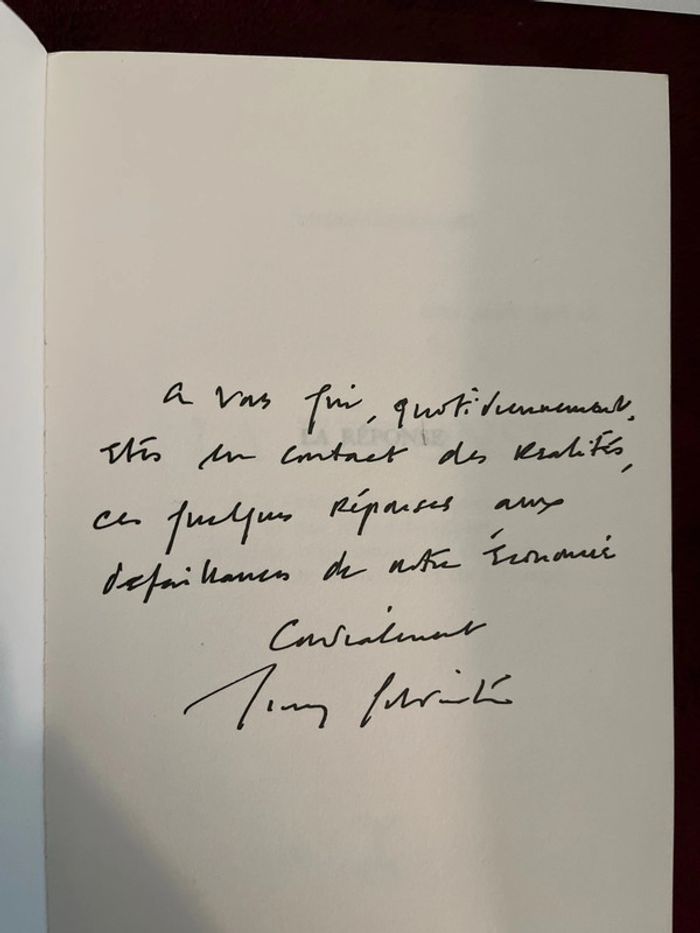 A vous qui, quotidiennement,
êtes en contact des réalités,
ces quelques réponses aux
défaillances de notre économie
Cordialement
LA RÉPONSE